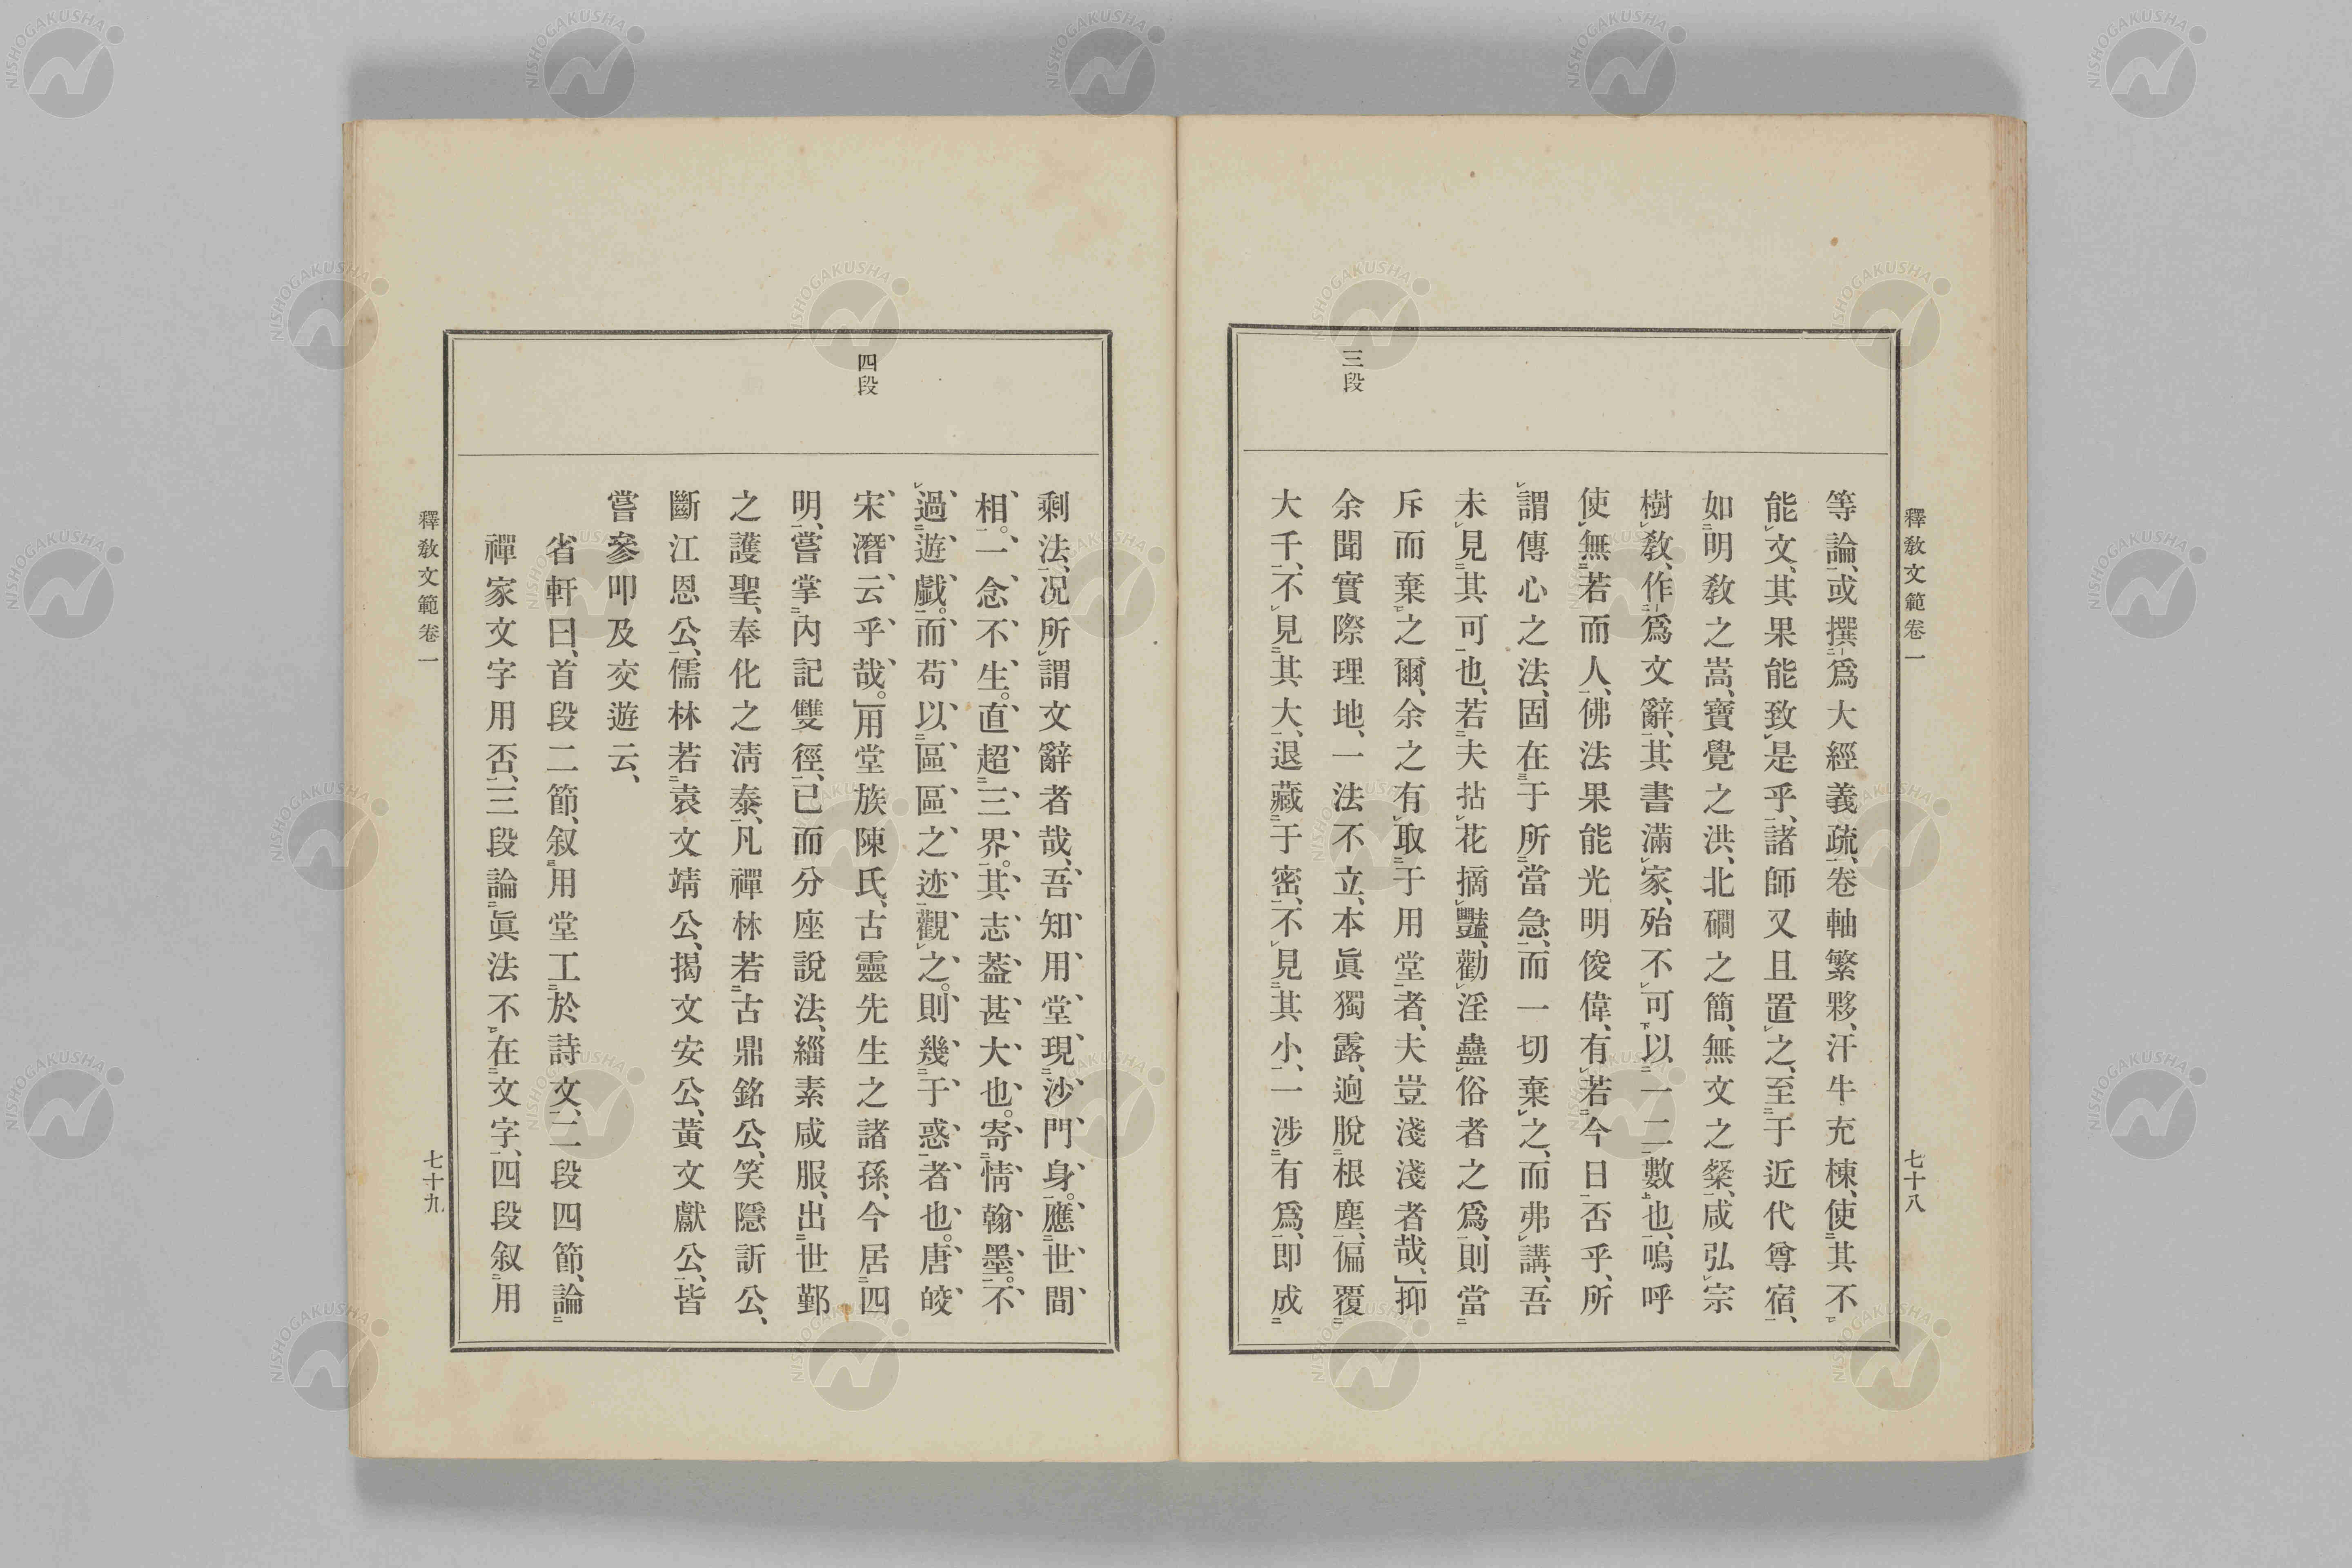 釋敎文範卷一
七十八
等論、或撰爲大經義疏、卷軸繁夥、汗牛充棟、使其不
能文、其果能致是乎、諸師又且置之、至于近代尊宿、
如明敎之嵩、寶覺之洪、北磵之簡、無文之粲、咸弘宗
樹敎、作爲文辭、其書滿家、殆不可以一二數也、嗚呼
使無若而人、佛法果能光明俊偉、有若今日否乎、所
謂傳心之法、固在于所當急、而一切棄之、而弗講、吾
未見其可也、若夫拈花摘豔、勸淫蠱俗者之爲、則當
斥而棄之爾、余之有取于用堂者、夫豈淺淺者哉、」抑
三段
余聞實際理地、一法不立、本眞獨露、逈脫根塵、偏覆
大千、不見其大、退藏于密、不見其小、一涉有爲、即成
四段
剩法、况所謂文辭者哉、吾知用堂現沙門身。應世間
相。一念不生。直超三界。其志蓋甚大也。寄情翰墨。不
過遊戲。而苟以區區之迹觀之。則幾于惑者也。唐皎
宋潛云乎哉。」用堂族陳氏、古靈先生之諸孫、今居四
明、嘗掌內記雙徑、已而分座說法、緇素咸服、出世鄞
之護聖、奉化之淸泰、凡禪林若古鼎銘公、笑隱訢公、
斷江恩公、儒林若袁文靖公、揭文安公、黃文獻公、皆
嘗參叩及交遊云、
省軒曰、首段二節、叙用堂工於詩文、二段四節、論
禪家文字用否、三段論眞法不在文字、四段叙用
釋敎文範卷一
七十九
NISHOGAKUSHA